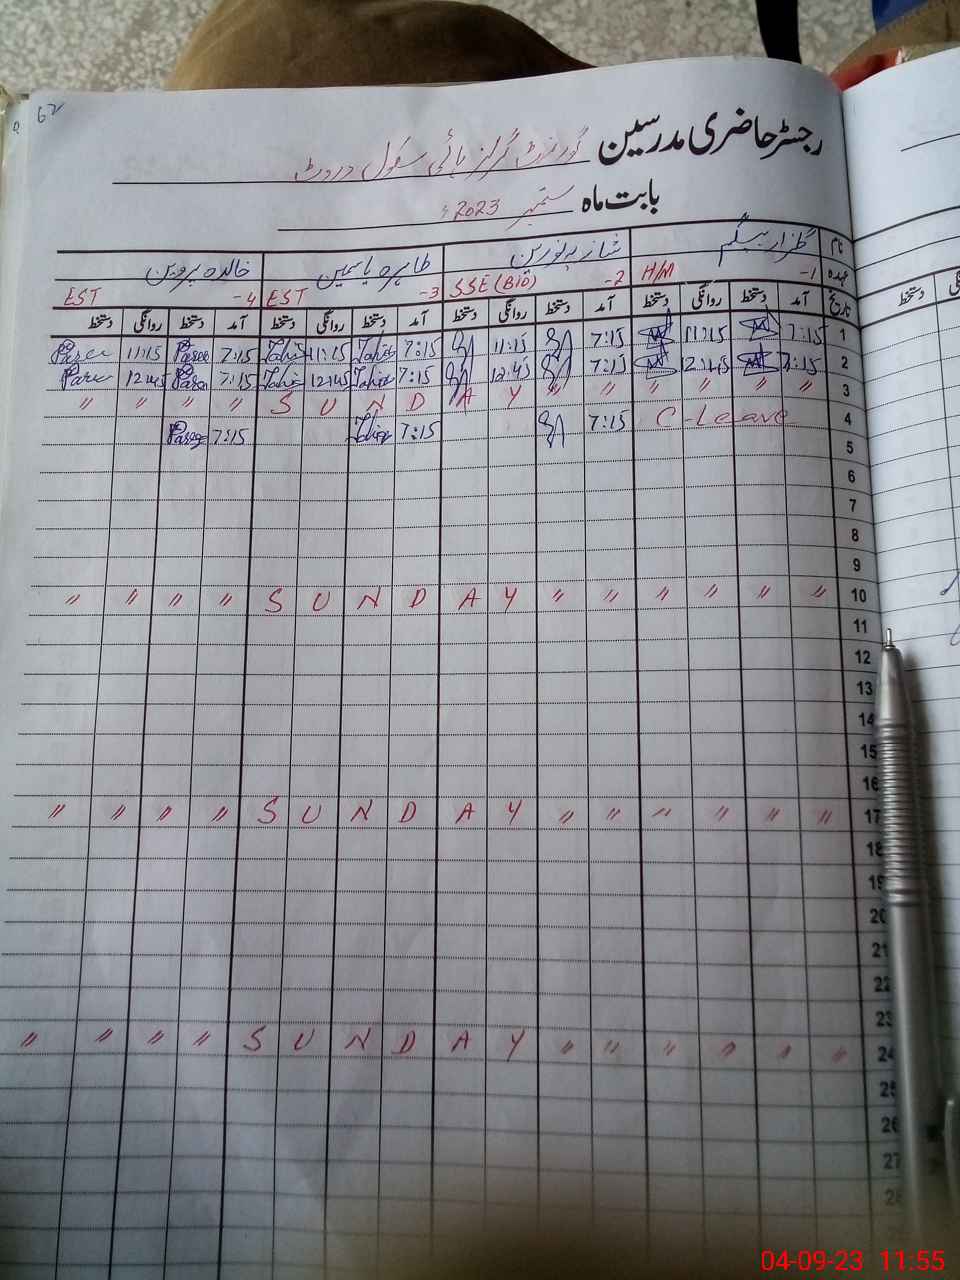 62
رجسٹر حاضری مدرسین گورنمنٹ گرلز ہائی سکول
بابت ماہ ستمبر 2023ء
نام گلزار بیگم شازیہ نورین طاہرہ یاسمین خالدہ پروین
عہدہ 1- H/M 2- SSE (BIO) 3- EST 4- EST
تاریخ آمد دستخط روانگی دستخط آمد دستخط روانگی دستخط آمد دستخط روانگی دستخط آمد دستخط روانگی دستخط
1 7:15 11:15 7:15 11:15 7:15 Tahir 11:15 Tahir 7:15 Paree 11:15 Paree
2 7:15 12:45 7:15 12:45 7:15 Tahir 12:45 Tahir 7:15 Paree 12:45 Paree
3 〃 〃 〃 S U N D A Y 〃 〃 〃 〃 〃 〃
4 C-Leave 7:15 7:15 Tahir 7:15 Paree
5
6
7
8
9
10 〃 〃 〃 〃 S U N D A Y 〃 〃 〃 〃 〃 〃
11
12
13
14
15
16
17 〃 〃 〃 〃 S U N D A Y 〃 〃 〃 〃 〃 〃
18
19
20
21
22
23
24 〃 〃 〃 〃 S U N D A Y 〃 〃 〃 〃 〃 〃
25
26
27
28
دستخط
04-09-23 11:55